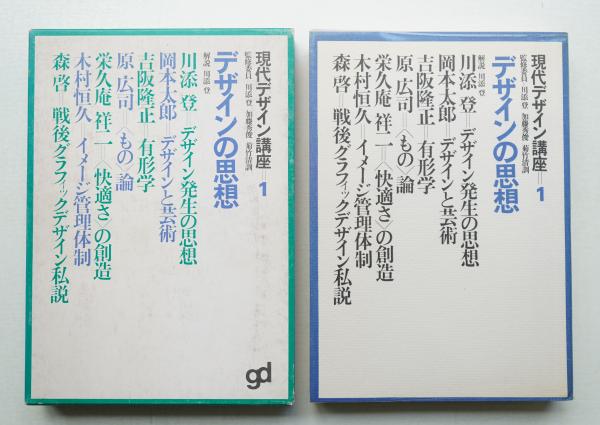 現代デザイン講座=1
監修委員 川添 登 加藤秀俊 菊竹清訓
デザインの思想
解説 川添 登
川添 登=デザイン発生の思想
岡本太郎=デザインと芸術
吉阪隆正=有形学
原 広司=〈もの〉論
栄久庵 祥二=〈快適さ〉の創造
木村恒久=イメージ管理体制
森 啓=戦後グラフィックデザイン私説
gd
現代デザイン講座=1
監修委員 川添 登 加藤秀俊 菊竹清訓
デザインの思想
解説 川添 登
川添 登=デザイン発生の思想
岡本太郎=デザインと芸術
吉阪隆正=有形学
原 広司=〈もの〉論
栄久庵 祥二=〈快適さ〉の創造
木村恒久=イメージ管理体制
森 啓=戦後グラフィックデザイン私説